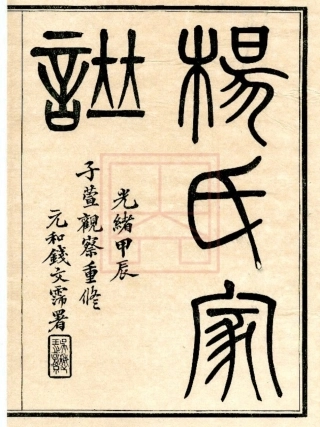 楊氏家
譜
光緒甲辰
子萱觀察重修
元和錢文霈署